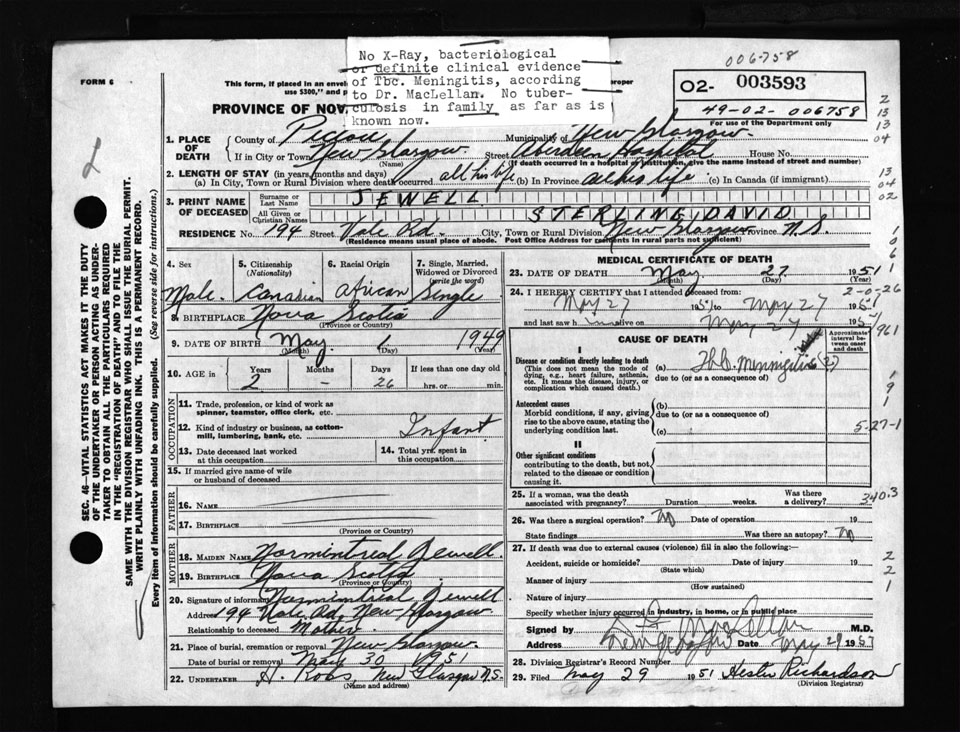 006758
No X-Ray, bacteriological
or definite clinical evidence
of Tbc. Meningitis, according
to Dr. MacLellan. No tuber-
culosis in family as far as is
known now.
FORM 6
This form, if placed in an envel
use $300," and p
roper
PROVINCE OF NOV
O2- 003593
49-02-006758
For use of the Department only
1. PLACE OF DEATH
County of Pictou Municipality of New Glasgow
If in City or Town New Glasgow (Name) Street Aberdeen Hospital House No.
(If death occurred in a hospital or institution, give the name instead of street and number)
2. LENGTH OF STAY (in years, months and days)
(a) In City, Town or Rural Division where death occurred all his life (b) In Province all his life (c) In Canada (if immigrant)
3. PRINT NAME OF DECEASED
Surname or Last Name JEWELL
All Given or Christian Names STERLING DAVID
RESIDENCE No. 194 Street Vale Rd. City, Town or Rural Division New Glasgow Province N.S.
(Residence means usual place of abode. Post Office Address for residents in rural parts not sufficient)
4. Sex
Male
5. Citizenship (Nationality)
Canadian
6. Racial Origin
African
7. Single, Married, Widowed or Divorced (write the word)
Single
8. BIRTHPLACE Nova Scotia
(Province or Country)
9. DATE OF BIRTH May 1 1949
(Month) (Day) (Year)
10. AGE in
Years Months Days If less than one day old
2 - 26 hrs. or min.
OCCUPATION
11. Trade, profession, or kind of work as spinner, teamster, office clerk, etc.
12. Kind of industry or business, as cotton-mill, lumbering, bank, etc. Infant
13. Date deceased last worked at this occupation
14. Total yrs. spent in this occupation
15. If married give name of wife or husband of deceased
FATHER
16. Name
17. Birthplace
(Province or Country)
MOTHER
18. MAIDEN NAME Jewell
19. Birthplace Nova Scotia
(Province or Country)
20. Signature of informant Jewell
Address 194 Vale Rd, New Glasgow
Relationship to deceased Mother
21. Place of burial, cremation or removal New Glasgow
Date of burial or removal May 30 1951
22. UNDERTAKER New Glasgow N.S.
(Name and address)
MEDICAL CERTIFICATE OF DEATH
23. DATE OF DEATH May 27 1951
(Month) (Day)
24. I HEREBY CERTIFY that I attended deceased from:
May 27 1951 to May 27 1951
and last saw h im alive on May 27 1951
CAUSE OF DEATH
Approximate interval between onset and death
I
Disease or condition directly leading to death
(This does not mean the mode of dying, e.g., heart failure, asthenia, etc. It means the disease, injury, or complication which caused death.)
(a) Tb. Menningitis (?)
due to (or as a consequence of)
Antecedent causes
Morbid conditions, if any, giving rise to the above cause, stating the underlying condition last.
(b)
due to (or as a consequence of)
(c)
II
Other significant conditions
contributing to the death, but not related to the disease or condition causing it.
25. If a woman, was the death associated with pregnancy? Duration weeks. Was there a delivery?
26. Was there a surgical operation? No Date of operation 19
State findings Was there an autopsy? No
27. If death was due to external causes (violence) fill in also the following:-
Accident, suicide or homicide? Date of injury 19
(State which)
Manner of injury
(How sustained)
Nature of injury
Specify whether injury occurred in industry, in home, or in public place
Signed by MacLellan M.D.
Address New Glasgow Date May 29 1951
28. Division Registrar's Record Number
29. Filed May 29 1951 Hester Richardson
(Division Registrar)
SEC. 46—VITAL STATISTICS ACT MAKES IT THE DUTY
OF THE UNDERTAKER OR PERSON ACTING AS UNDER-
TAKER TO OBTAIN ALL THE PARTICULARS REQUIRED
IN THE "REGISTRATION OF DEATH" AND TO FILE THE
SAME WITH THE DIVISION REGISTRAR WHO SHALL ISSUE THE BURIAL PERMIT.
WRITE PLAINLY WITH UNFADING INK. THIS IS A PERMANENT RECORD.
Every item of information should be carefully supplied. (See reverse side for instructions.)
2
13
13
04
13
04
02
1
0
0
6
1
2-0-26
1961
1
9
1
5-27-1
340.3
2
2
1